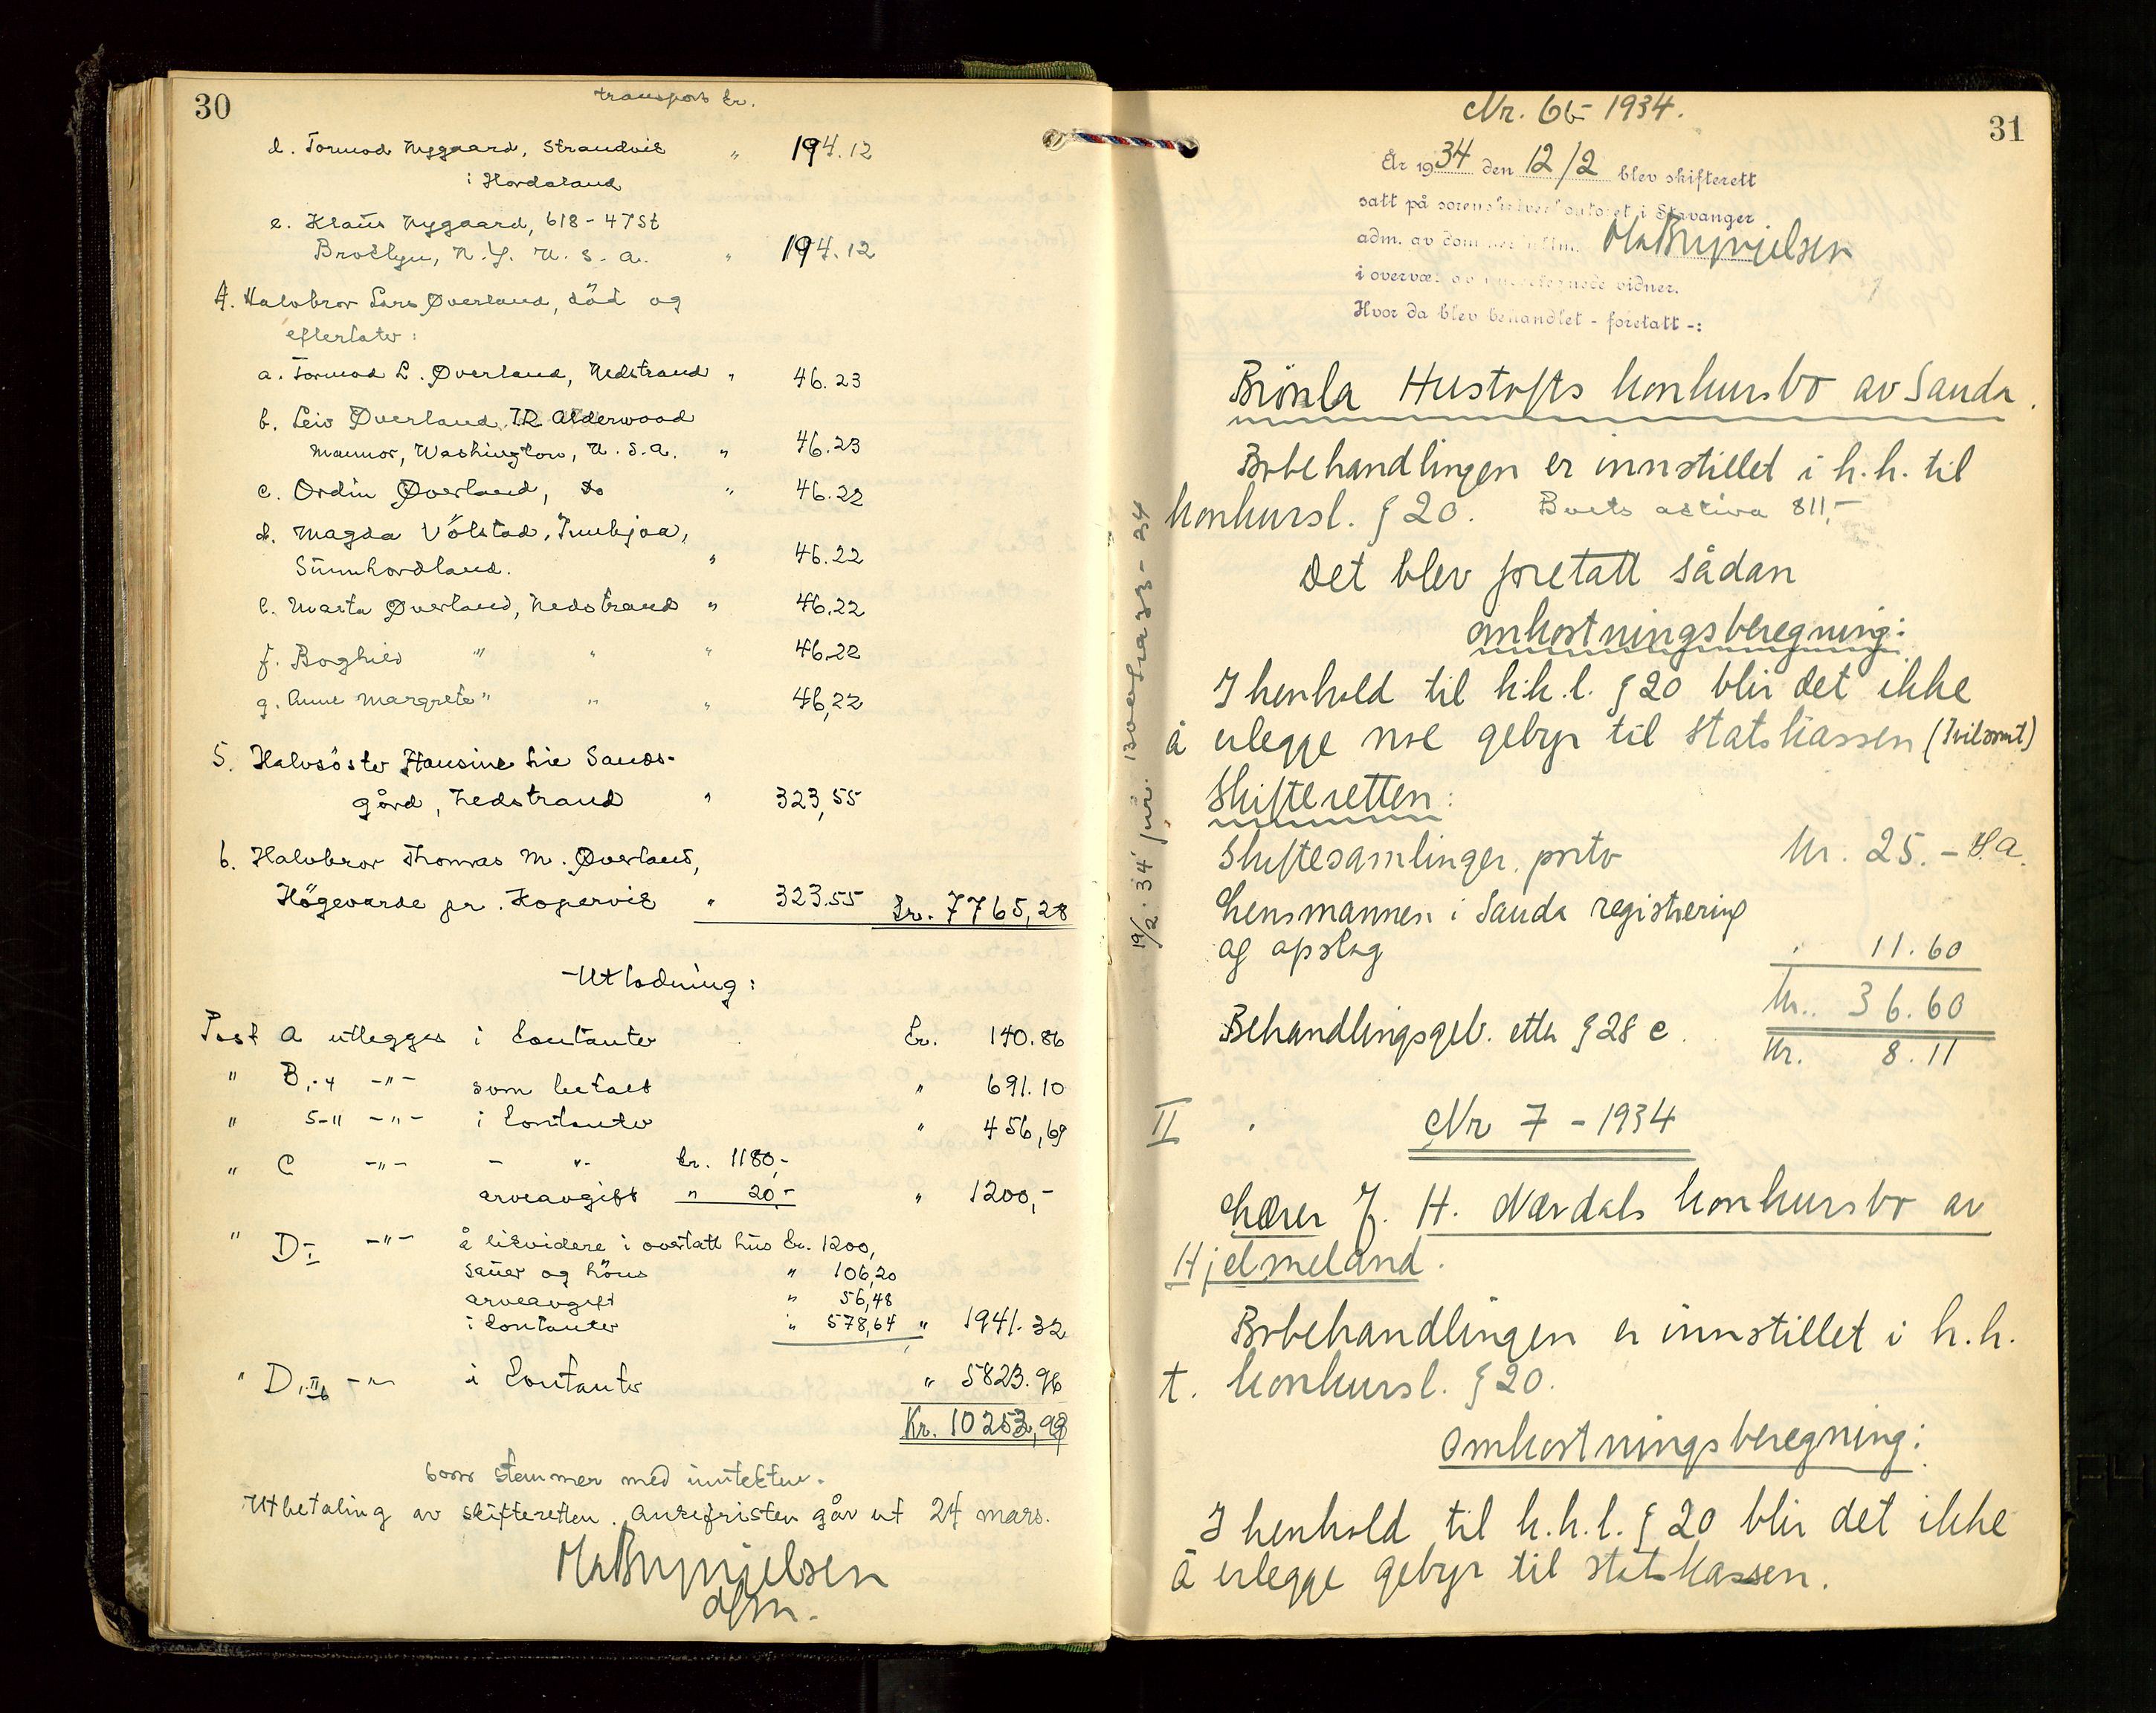 30
transport kr.
d. Tormod Nygaard, Strandvik " 194.12
i Hordaland
e. Klaus Nygaard, 618 - 47 St
Broklyn, N.Y. U.S.A. " 194.12
4. Halvbror Lars Øverland, död og
efterlater:
a. Tormod L. Øverland, Nedstrand " 46.23
b. Leiv Øverland, Alderwood
Mannor, Washington, U.S.A. " 46.23
c. Ordin Øverland, do " 46.22
d. Magda Völstad, Innbjoa,
Sunnhordland. " 46.22
e. Marta Øverland, Nedstrand " 46.22
f. Borghild " " " 46.22
g. Anne Margrete " " " 46,22
5. Halvsöster Hansine Lie Sands-
gård, Nedstrand " 323,55
6. Halvbror Thomas M. Øverland,
Högevarde pr. Kopervik " 323.55 kr. 7765,28
Utlodning:
Post A utlegges i kontanter kr. 140.86
" B, 1-4 -"- som betalt " 691.10
" 5-11 -"- i kontanter " 456,69
" C -"- - "- kr. 1180,-
arveavgift " 20,- " 1200,-
" D I -"- å likvidere i overtatt hus kr. 1200,
sauer og höns " 106,20
arveavgift " 56,48
i kontanter " 578,64 " 1941.32
" D, II-6 -"- i kontanter " 5823.96
Kr. 10253,93
som stemmer med inntekten.
Utbetaling av skifteretten. Ankefristen går ut 24 mars.
O Brynjelsen
dfm.
31
Nr. 6b - 1934.
År 1934 den 12/2 blev skifterett
satt på sorenskriverkontoret i Stavanger
adm. av dommerfullm. O Brynjelsen
i overvær av undertegnede vidner.
Hvor da blev behandlet - foretatt -:
Brönla Hustofts konkursbo av Sauda.
Bobehandlingen er innstillet i h.h. til
konkursl. § 20. Boets aktiva 811,-
Det blev foretatt sådan
omkostningsberegning:
I henhold til k.k.l. § 20 blir det ikke
å erlegge noe gebyr til statskassen (Tvilsomt)
Skifteretten:
Skiftesamlinger, porto Kr. 25.- H.A.
Lensmannen i Sauda registrering
og opslag " 11.60
Kr. 36.60
Behandlingsgeb. etter § 28 c. Kr. 8.11
II Nr 7 - 1934
Lærer J. H. Nærdals konkursbo av
Hjelmeland.
Bobehandlingen er innstillet i h.h.
t. konkursl. § 20.
Omkostningsberegning:
I henhold til k.k.l. § 20 blir det ikke
å erlegge gebyr til statskassen.